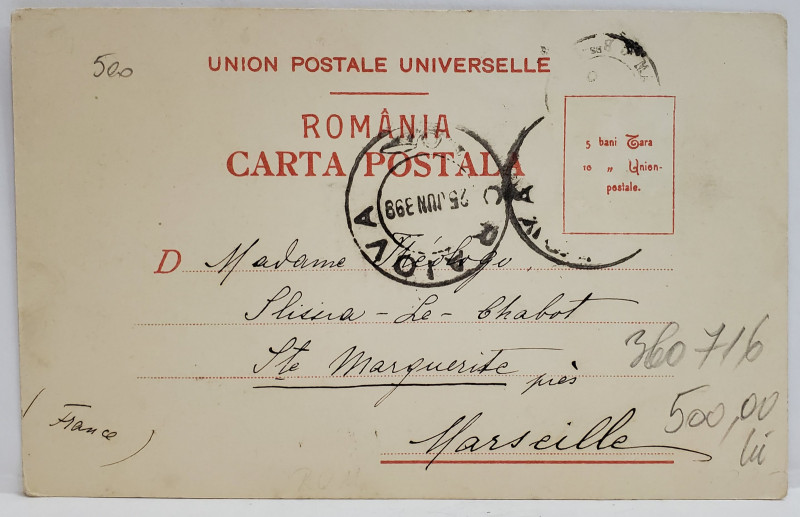 500
UNION POSTALE UNIVERSELLE
ROMÂNIA
CARTA POSTALA
5 bani Tara
10 „ Union-
postale.
CRAIOVA
25 JUN 98
D Madame Théologo,
Le - Chabot
Ste Marguerite près
Marseille
(France)
360716
500,00
lei